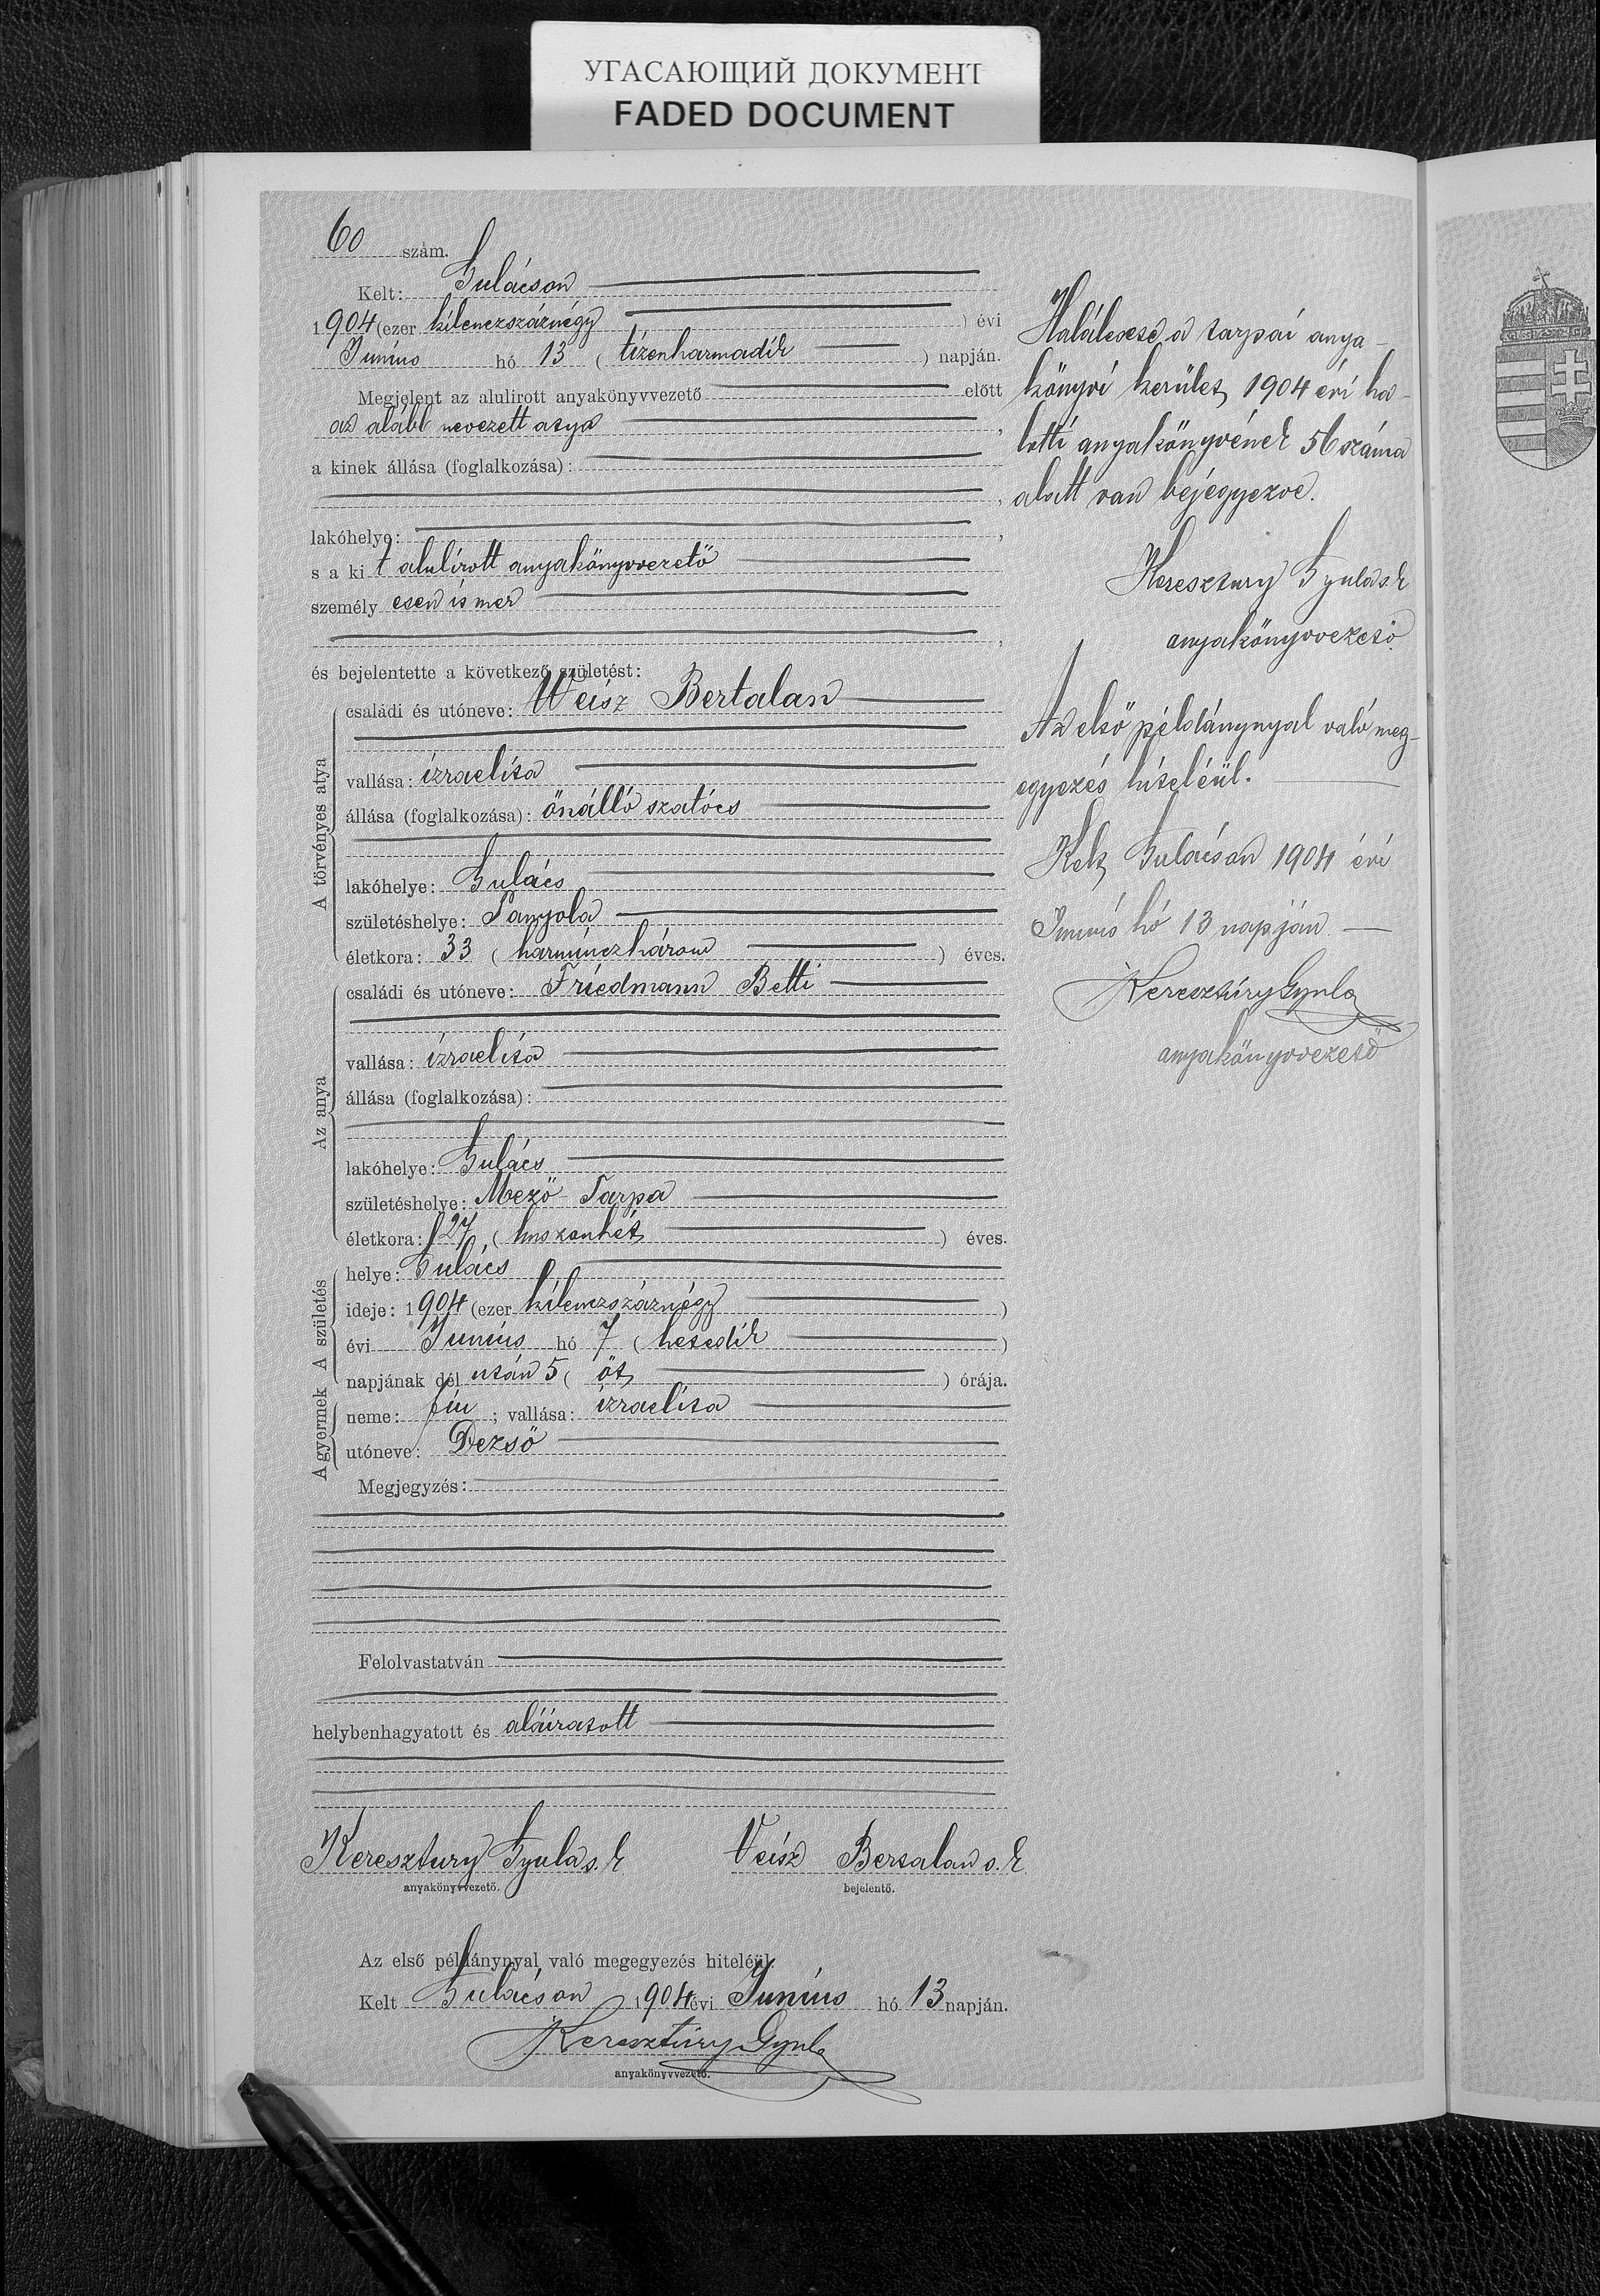 УГАСАЮЩИЙ ДОКУМЕНТ
FADED DOCUMENT
60 szám.
Kelt: Gulácson
1904 (ezer kilenczszáznégy ) évi
Junius hó 13 ( tizenharmadik ) napján.
Megjelent az alulirott anyakönyvvezető előtt
az alább nevezett atya ,
a kinek állása (foglalkozása):
,
lakóhelye: ,
s a ki t alulirott anyakönyvvezető
személy esen ismer
,
és bejelentette a következő születést:
A törvényes atya
családi és utóneve: Weisz Bertalan
vallása: izraelita
állása (foglalkozása): önálló szatócs
lakóhelye: Gulács
születéshelye: Panyola
életkora: 33 ( harminczhárom ) éves.
Az anya
családi és utóneve: Friedmann Betti
vallása: izraelita
állása (foglalkozása):
lakóhelye: Gulács
születéshelye: Mező-Tarpa
életkora: 27 ( huszonhét ) éves.
A születés
helye: Gulács
ideje: 1904 (ezer kilenczszáznégy )
évi Junius hó 7 ( hetedik )
napjának dél után 5 ( öt ) órája.
A gyermek
neme: fiu ; vallása: izraelita
utóneve: Dezső
Megjegyzés:
Felolvastatván
helybenhagyatott és aláiratott
Keresztury Gyula s. k Veisz Bertalan s. k
anyakönyvvezető. bejelentő.
Az első példánynyal való megegyezés hiteléül.
Kelt Gulácson 1904 évi Junius hó 13 napján.
Keresztúry Gyula
anyakönyvvezető.
Halálesete a tarpai anya-
könyvi kerület 1904 évi ha-
lotti anyakönyvének 56 száma
alatt van bejegyezve.
Keresztury Gyula s. k
anyakönyvvezető.
Az első példánynyal való meg-
egyezés hiteléül.
Kelt Gulácson 1904 évi
Junius hó 13 napján
Keresztúry Gyula
anyakönyvvezető